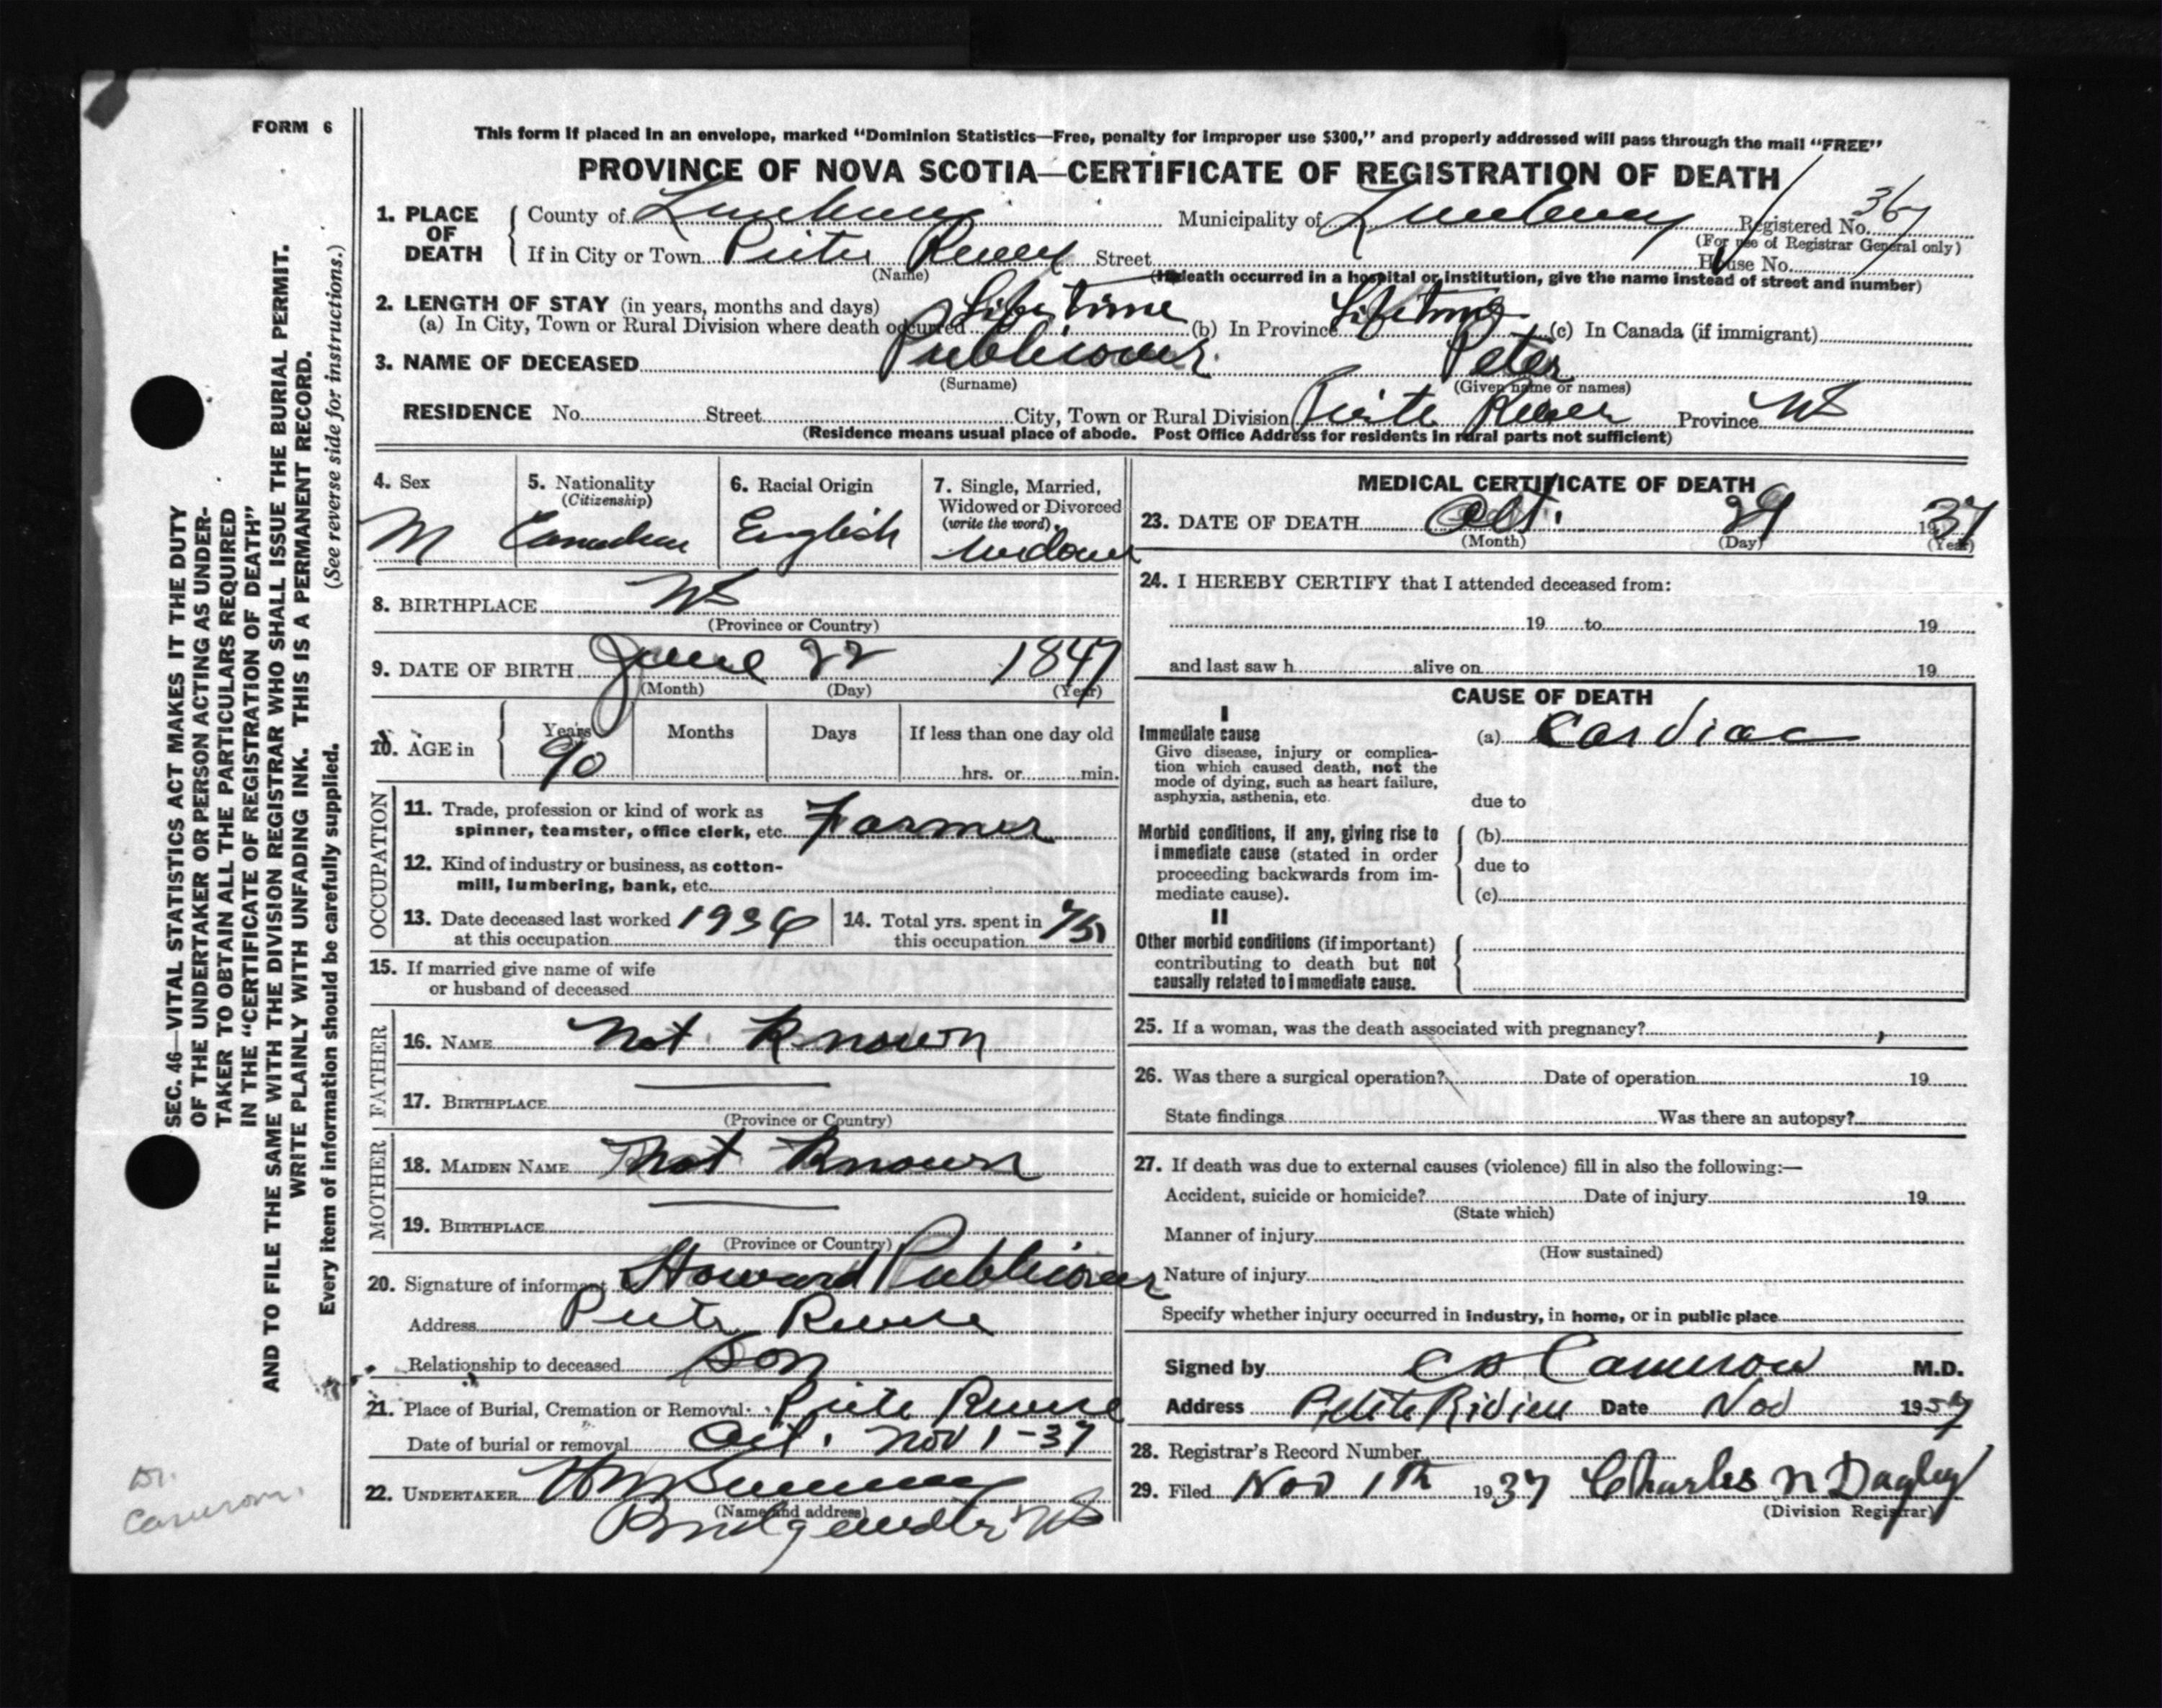 FORM 6
This form if placed in an envelope, marked "Dominion Statistics—Free, penalty for improper use $300," and properly addressed will pass through the mail "FREE"
PROVINCE OF NOVA SCOTIA—CERTIFICATE OF REGISTRATION OF DEATH
1. PLACE OF DEATH
County of Lunenburg Municipality of Lunenburg Registered No. 367
(For use of Registrar General only)
If in City or Town Street House No.
(Name) (If death occurred in a hospital or institution, give the name instead of street and number)
2. LENGTH OF STAY (in years, months and days)
(a) In City, Town or Rural Division where death occurred Life time (b) In Province Lifetime (c) In Canada (if immigrant)
3. NAME OF DECEASED Publicover Peter
(Surname) (Given name or names)
RESIDENCE No. Street City, Town or Rural Division Province NS
(Residence means usual place of abode. Post Office Address for residents in rural parts not sufficient)
4. Sex
M
5. Nationality
(Citizenship)
Canadian
6. Racial Origin
English
7. Single, Married,
Widowed or Divorced
(write the word)
Widower
8. BIRTHPLACE NS
(Province or Country)
9. DATE OF BIRTH June 22 1847
(Month) (Day) (Year)
10. AGE in Years Months Days If less than one day old
90 hrs. or min.
OCCUPATION
11. Trade, profession or kind of work as
spinner, teamster, office clerk, etc. Farmer
12. Kind of industry or business, as cotton-
mill, lumbering, bank, etc.
13. Date deceased last worked
at this occupation
14. Total yrs. spent in
this occupation 75
15. If married give name of wife
or husband of deceased
FATHER
16. NAME Not Known
17. BIRTHPLACE
(Province or Country)
MOTHER
18. MAIDEN NAME Not Known
19. BIRTHPLACE
(Province or Country)
20. Signature of informant Howard Publicover
Address
Relationship to deceased Son
21. Place of Burial, Cremation or Removal
Date of burial or removal Oct. Nov 1-37
22. UNDERTAKER
(Name and address)
Bridgewater NS
MEDICAL CERTIFICATE OF DEATH
23. DATE OF DEATH Oct. 29 1937
(Month) (Day) (Year)
24. I HEREBY CERTIFY that I attended deceased from:
19 to 19
and last saw h alive on 19
CAUSE OF DEATH
I
Immediate cause
Give disease, injury or complica-
tion which caused death, not the
mode of dying, such as heart failure,
asphyxia, asthenia, etc.
(a) Cardiac
due to
Morbid conditions, if any, giving rise to
immediate cause (stated in order
proceeding backwards from im-
mediate cause).
(b)
due to
(c)
II
Other morbid conditions (if important)
contributing to death but not
causally related to immediate cause.
25. If a woman, was the death associated with pregnancy?
26. Was there a surgical operation? Date of operation 19
State findings Was there an autopsy?
27. If death was due to external causes (violence) fill in also the following:—
Accident, suicide or homicide? Date of injury 19
(State which)
Manner of injury
(How sustained)
Nature of injury
Specify whether injury occurred in industry, in home, or in public place
Signed by Cameron M.D.
Address Petite Riviere Date Nov 19
28. Registrar's Record Number
29. Filed Nov 1th 1937 Charles N Dagley
(Division Registrar)
SEC. 46—VITAL STATISTICS ACT MAKES IT THE DUTY
OF THE UNDERTAKER OR PERSON ACTING AS UNDER-
TAKER TO OBTAIN ALL THE PARTICULARS REQUIRED
IN THE "CERTIFICATE OF REGISTRATION OF DEATH"
AND TO FILE THE SAME WITH THE DIVISION REGISTRAR WHO SHALL ISSUE THE BURIAL PERMIT.
WRITE PLAINLY WITH UNFADING INK. THIS IS A PERMANENT RECORD.
Every item of information should be carefully supplied. (See reverse side for instructions.)
Dr.
Cameron.